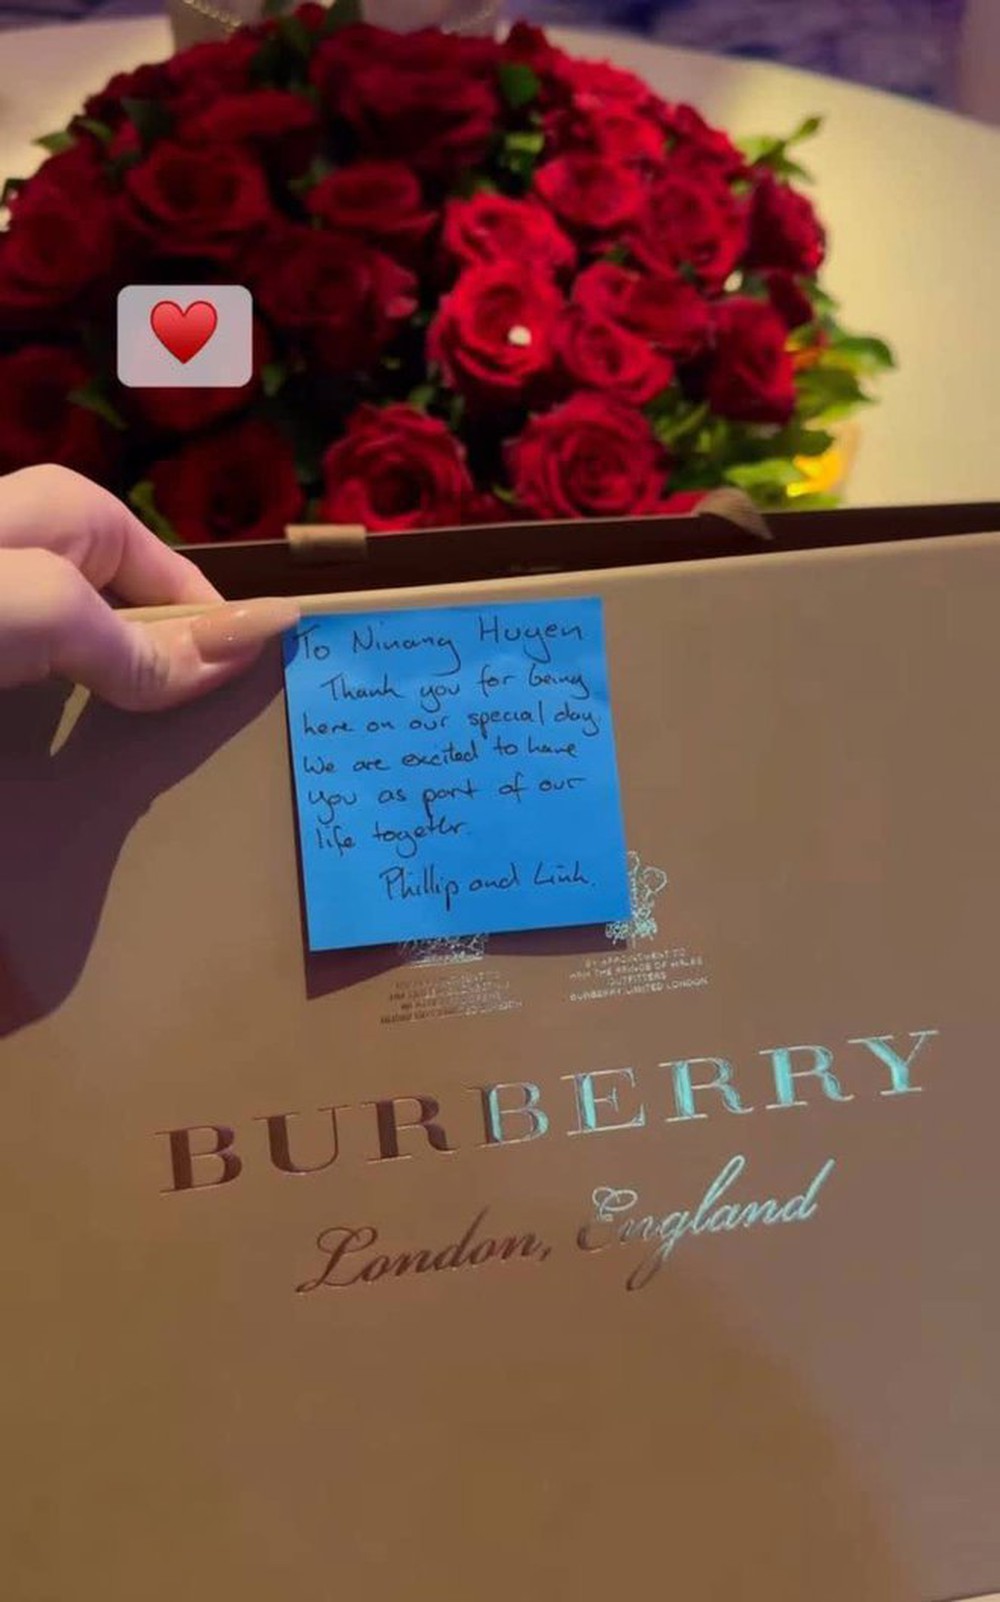 To Ninang Huyen
Thank you for being
here on our special day.
We are excited to have
you as part of our
life together.
Phillip and Linh.
BY APPOINTMENT TO
HRH THE PRINCE OF WALES
OUTFITTERS
BURBERRY LIMITED LONDON
BURBERRY
London, England